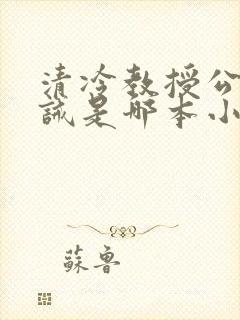 清冷教授公
誡是哪本小
蘇魯